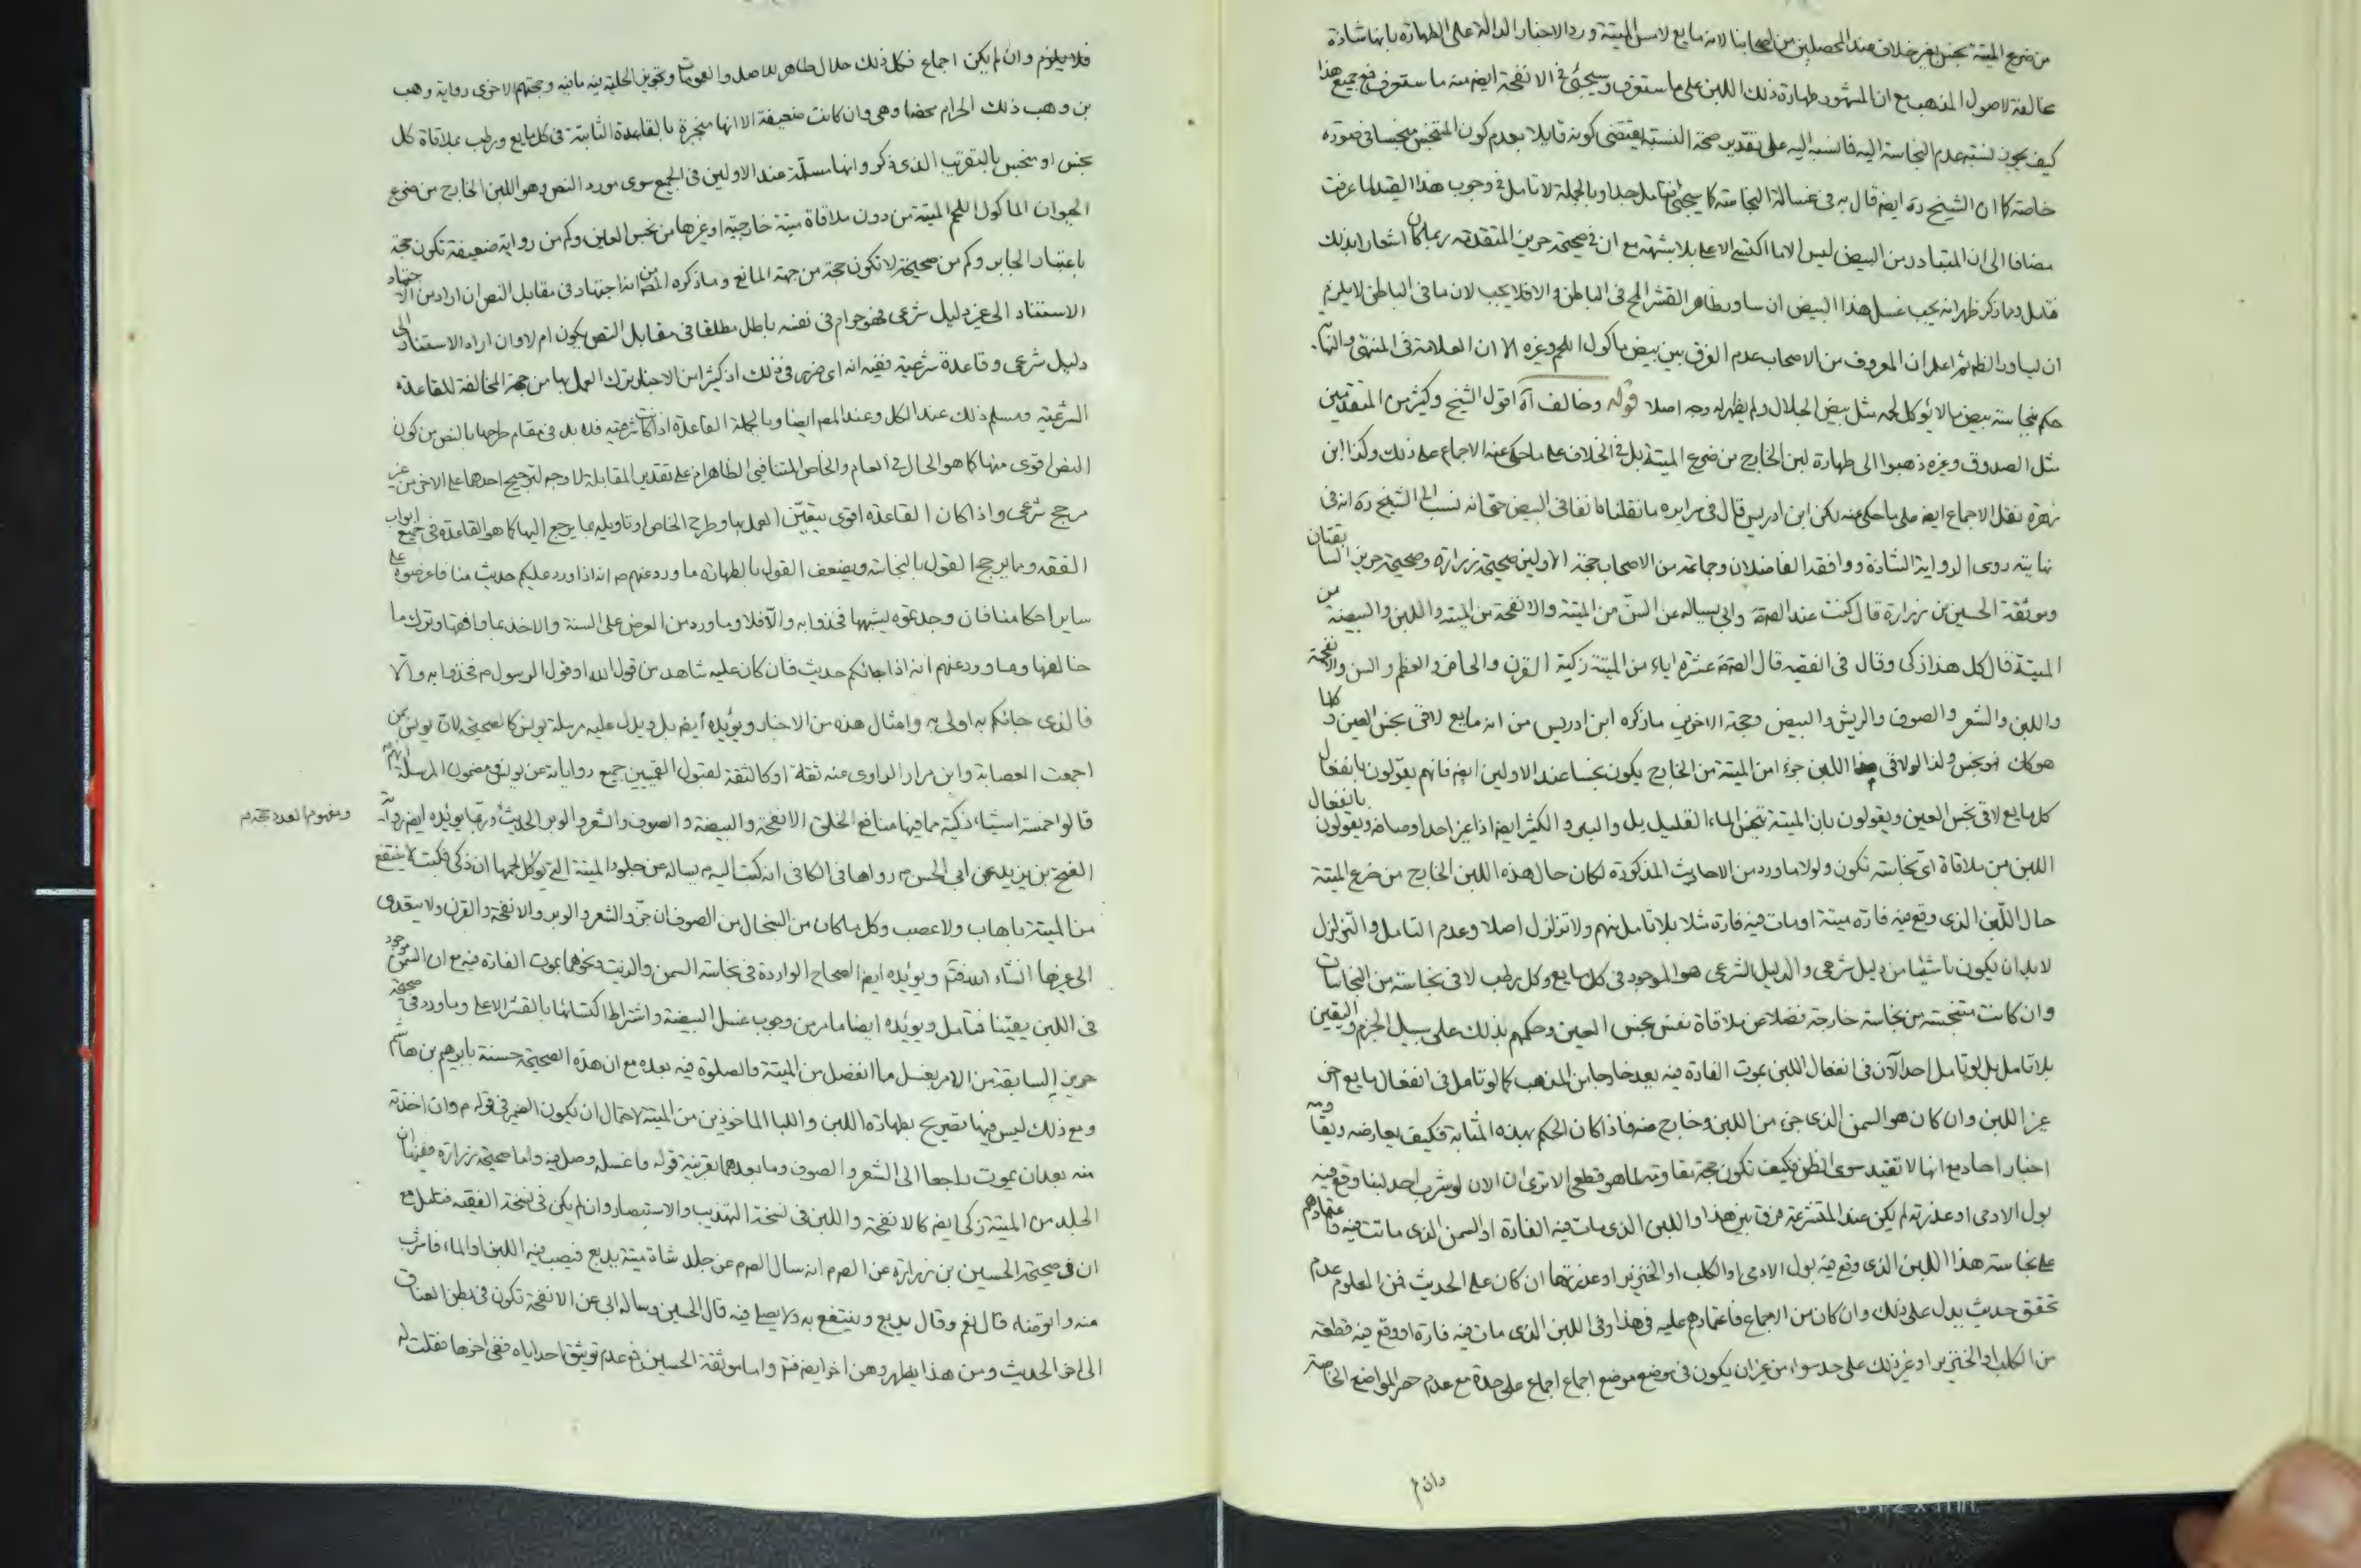 من ضرع الميتة نجس بغير خلاف عند المحصلين من اصحابنا لانه مايع لامس الميتة ورد الاخبار الدالة على الطهارة بانها شاذة
مخالفة لاصول المذهب مع ان المشهور طهارة ذلك اللبن على ما ستعرف وسيجئ في الانفحة ايضا منه ما ستعرف فمع جميع هذا
كيف يجوز نسبة عدم النجاسة اليه فانسبه اليه على تقدير صحة النسبة يقتضى كونه قايلا بعدم كون المتنجس منجسا في صورة
خاصة كما ان الشيخ ره ايضا قال به في غسالة النجاسة كما سيجئ فتامل جدا وبالجملة لا تامل في وجوب هذا القيد لما عرفت
مضافا الى ان المتبادر من البيض ليس الا ما اكتسى الاعلى بلا شبهة مع ان في صحيحة حريز المتقدمة ربما كان اشعارا بذلك
فتامل ومما ذكر ظهر انه يجب غسل هذا البيض ان ساور ظاهر القشر المح في الباطن والا فلا يجب لان ما في الباطن لا يلزم
ان يساور الظاهر ثم اعلم ان المعروف من الاصحاب عدم الفرق بين بيض ماكول اللحم وغيره الا ان العلامة في المنتهى والنهاية
حكم بنجاسة بيض ما لا يؤكل لحمه مثل بيض الجلال ولم يظهر له وجه اصلا قوله وخالف آه اقول الشيخ وكثير من المتقدمين
مثل الصدوق وغيره ذهبوا الى طهارة لبن الخارج من ضرع الميتة بل في الخلاف على ما حكى عنه الاجماع على ذلك وكذا ابن
زهرة نقل الاجماع ايضا على ما حكى عنه لكن ابن ادريس قال في سرايره ما نقلناه انفا في البيض حتى انه نسب الى الشيخ ره انه في
نهايته روى الرواية الشاذة ووافقه الفاضلان وجماعة من الاصحاب حجة الاولين صحيحة زرارة وصحيحة حريز السابقتان
وموثقة الحسين بن زرارة قال كنت عند الصّ وابي يساله عن السنّ من الميتة والانفحة من الميتة واللبن والبيضة من
الميتة فقال كل هذا ذكى وقال في الفقيه قال الصّ عشرة اشياء من الميتة زكية القرن والحافر والعظم والسن والانفحة
واللبن والشعر والصوف والريش والبيض وحجة الاخرين ما ذكره ابن ادريس من انه مايع لاقى نجس العين وكلما
هو كان فهو نجس ولذا لو لاقى هذا اللبن جزءا من الميتة من الخارج يكون نجسا عند الاولين ايضا فانهم يقولون بانفعال
كل مايع لاقى نجس العين ويقولون بان الميتة تنجس الماء القليل بل والبئر والكثير ايضا اذا غير احد اوصافه ويقولون بانفعال
اللبن من ملاقاة اى نجاسة تكون ولولا ما ورد من الاحاديث المذكورة لكان حال هذه اللبن الخارج من ضرع الميتة
حال اللبن الذى وقع فيه فارة ميتة او مات فيه فارة مثلا بلا تامل منهم ولا تزلزل اصلا وعدم التامل والتزلزل
لا بد ان يكون ناشئا من دليل شرعى والدليل الشرعى هو الموجود في كل مايع وكل رطب لاقى نجاسة من النجاسات
وان كانت متنجسة من نجاسة خارجة فضلا عن ملاقاة نفس نجس العين وحكمهم بذلك على سبيل الجزم واليقين
بلا تامل بل لو تامل احد الآن في انفعال اللبن بموت الفارة فيه يعد خارجا من المذهب كما لو تامل في انفعال مايع اخر
غير اللبن وان كان هو السمن الذى جزء من اللبن وخارج منه فاذا كان الحكم بهذه المثابة فكيف يعارضه ويقاومه
اخبار احاد مع انها لا تفيد سوى الظن فكيف تكون حجة مقاومة لما هو قطعى الا ترى ان الان لو شرب احد لبنا وقع فيه
بول الادمى او عذرته لم يكن عند المتشرعة فرق بين هذا واللبن الذى مات فيه الفارة او السمن الذى ماتت فيه فاعتمادهم
على نجاسة هذا اللبن الذى وقع فيه بول الادمى او الكلب او الخنزير او عذرتها ان كان على الحديث فمن المعلوم عدم
تحقق حديث يدل على ذلك وان كان من الاجماع فاعتمادهم عليه في هذا وفى اللبن الذى مات فيه فارة او وقع فيه قطعة
من الكلب او الخنزير او غير ذلك على حد سواء من غير ان يكون في موضع موضع اجماع اجماع على حدة مع عدم حصر المواضع الخاصة
وان لم
فلا يلزم وان لم يكن اجماع فكل ذلك حلال طاهر للاصل والعمومات وتجويز الحلية فيه ما فيه وحجتهم الاخرى رواية وهب
بن وهب ذلك الحرام محضا وهى وان كانت ضعيفة الا انها منجبرة بالقاعدة الثابتة في كل مايع ورطب بملاقاة كل
نجس او متنجس بالتقريب الذى ذكر وانها مسلمة عند الاولين في الجميع سوى مورد النص وهو اللبن الخارج من ضرع
الحيوان الماكول اللحم الميتة من دون ملاقاة ميتة خارجية او غيرها من نجس العين وكم من رواية ضعيفة تكون حجة
باعتبار الجابر وكم من صحيحة لا تكون حجة من جهة المانع وما ذكره المصّ من انه اجتهاد في مقابل النص ان اراد من الاجتهاد
الاستناد الى غير دليل شرعى فهو حرام في نفسه باطل مطلقا في مقابل النص يكون ام لا وان اراد الاستناد الى
دليل شرعى وقاعدة شرعية ففيه انه اى ضرر في ذلك اذ كثير من الاخبار يترك العمل بها من جهة المخالفة للقاعدة
الشرعية ومسلم ذلك عند الكل وعند المصّ ايضا وبالجملة القاعدة اذا كانت شرعية فلا بد في مقام طرحها بالنص من كون
النص اقوى منها كما هو الحال في العام والخاص المتنافي الظاهر اذ على تقدير المقابلة لا وجه لترجيح احدهما على الاخر من غير
مرجح شرعى واذا كان القاعدة اقوى يتعيّن العمل بها وطرح الخاص او تاويله بما يرجع اليها كما هو القاعدة في جميع ابواب
الفقه ومما يرجح القول بالنجاسة ويضعف القول بالطهارة ما ورد عنهم ع انه اذا ورد عليكم حديث منا فاعرضوه على
ساير احكامنا فان وجدتموه يشبهها فخذوا به والا فلا وما ورد من العرض على السنة والاخذ بما وافقها وترك ما
خالفها وما ورد عنهم انه اذا جائكم حديث فان كان عليه شاهد من قول الله او قول الرسول ص فخذوا به والا
فالذى جائكم به اولى به وامثال هذه من الاخبار ويؤيده ايضا بل ويدل عليه مرسلة يونس كالصحيحة لان يونس ممن
اجمعت العصابة وابن مرار الراوى عنه ثقة او كالثقة لقبول القميين جميع رواياته عن يونس ومضمون المرسلة انهم ع
قالوا خمسة اشياء ذكية مما فيها منافع الخلق الانفحة والبيضة والصوف والشعر والوبر الحديث وربما يؤيده ايضا رواية
ومفهوم العدد حجة م
الفتح بن يزيد عن ابى الحسن ع رواها في الكافى انه كتب اليه ع يساله عن جلود الميتة التى يؤكل لحمها ان ذكى فكتب لا ينتفع
من الميتة باهاب ولا عصب وكل ما كان من السخال من الصوف ان جز والشعر والوبر والانفحة والقرن ولا يتعدى
الى غيرها انشاء الله فتم ويؤيده ايضا الصحاح الواردة في نجاسة السمن والزيت ونحوهما بموت الفارة فيه مع ان السمن موجود
في اللبن يقينا فتامل ويؤيده ايضا ما مر من وجوب غسل البيضة واشتراط اكتسائها بالقشر الاعلى وما ورد في صحيحة
حريز السابقة من الامر بغسل ما انفصل من الميتة والصلوة فيه بعده مع ان هذه الصحيحة حسنة بابرهيم بن هاشم
ومع ذلك ليس فيها تصريح بطهارة اللبن واللبا الماخوذين من الميتة لاحتمال ان يكون الضمير في قوله ع وان اخذته
منه بعد ان يموت راجعا الى الشعر والصوف وما بعدهما بقرينة قوله فاغسله وصل فيه واما صحيحة زرارة ففيها ان
الجلد من الميتة زكى ايضا كالانفحة واللبن في نسخة التهذيب والاستبصار وان لم يكن في نسخة الفقيه فتامل مع
ان في صحيحة الحسين بن زرارة عن الصّ ع انه سال الصّ ع عن جلد شاة ميتة يدبغ فيصب فيه اللبن او الماء فاشرب
منه واتوضاء قال نعم وقال يدبغ وينتفع به ولا يصلى فيه قال الحسين وساله ابى عن الانفحة تكون في بطن العناق
الى اخر الحديث ومن هذا يظهر وهن اخر ايضا فتم واما موثقة الحسين فمع عدم توثيق احد اياه ففى اخرها فقلت له